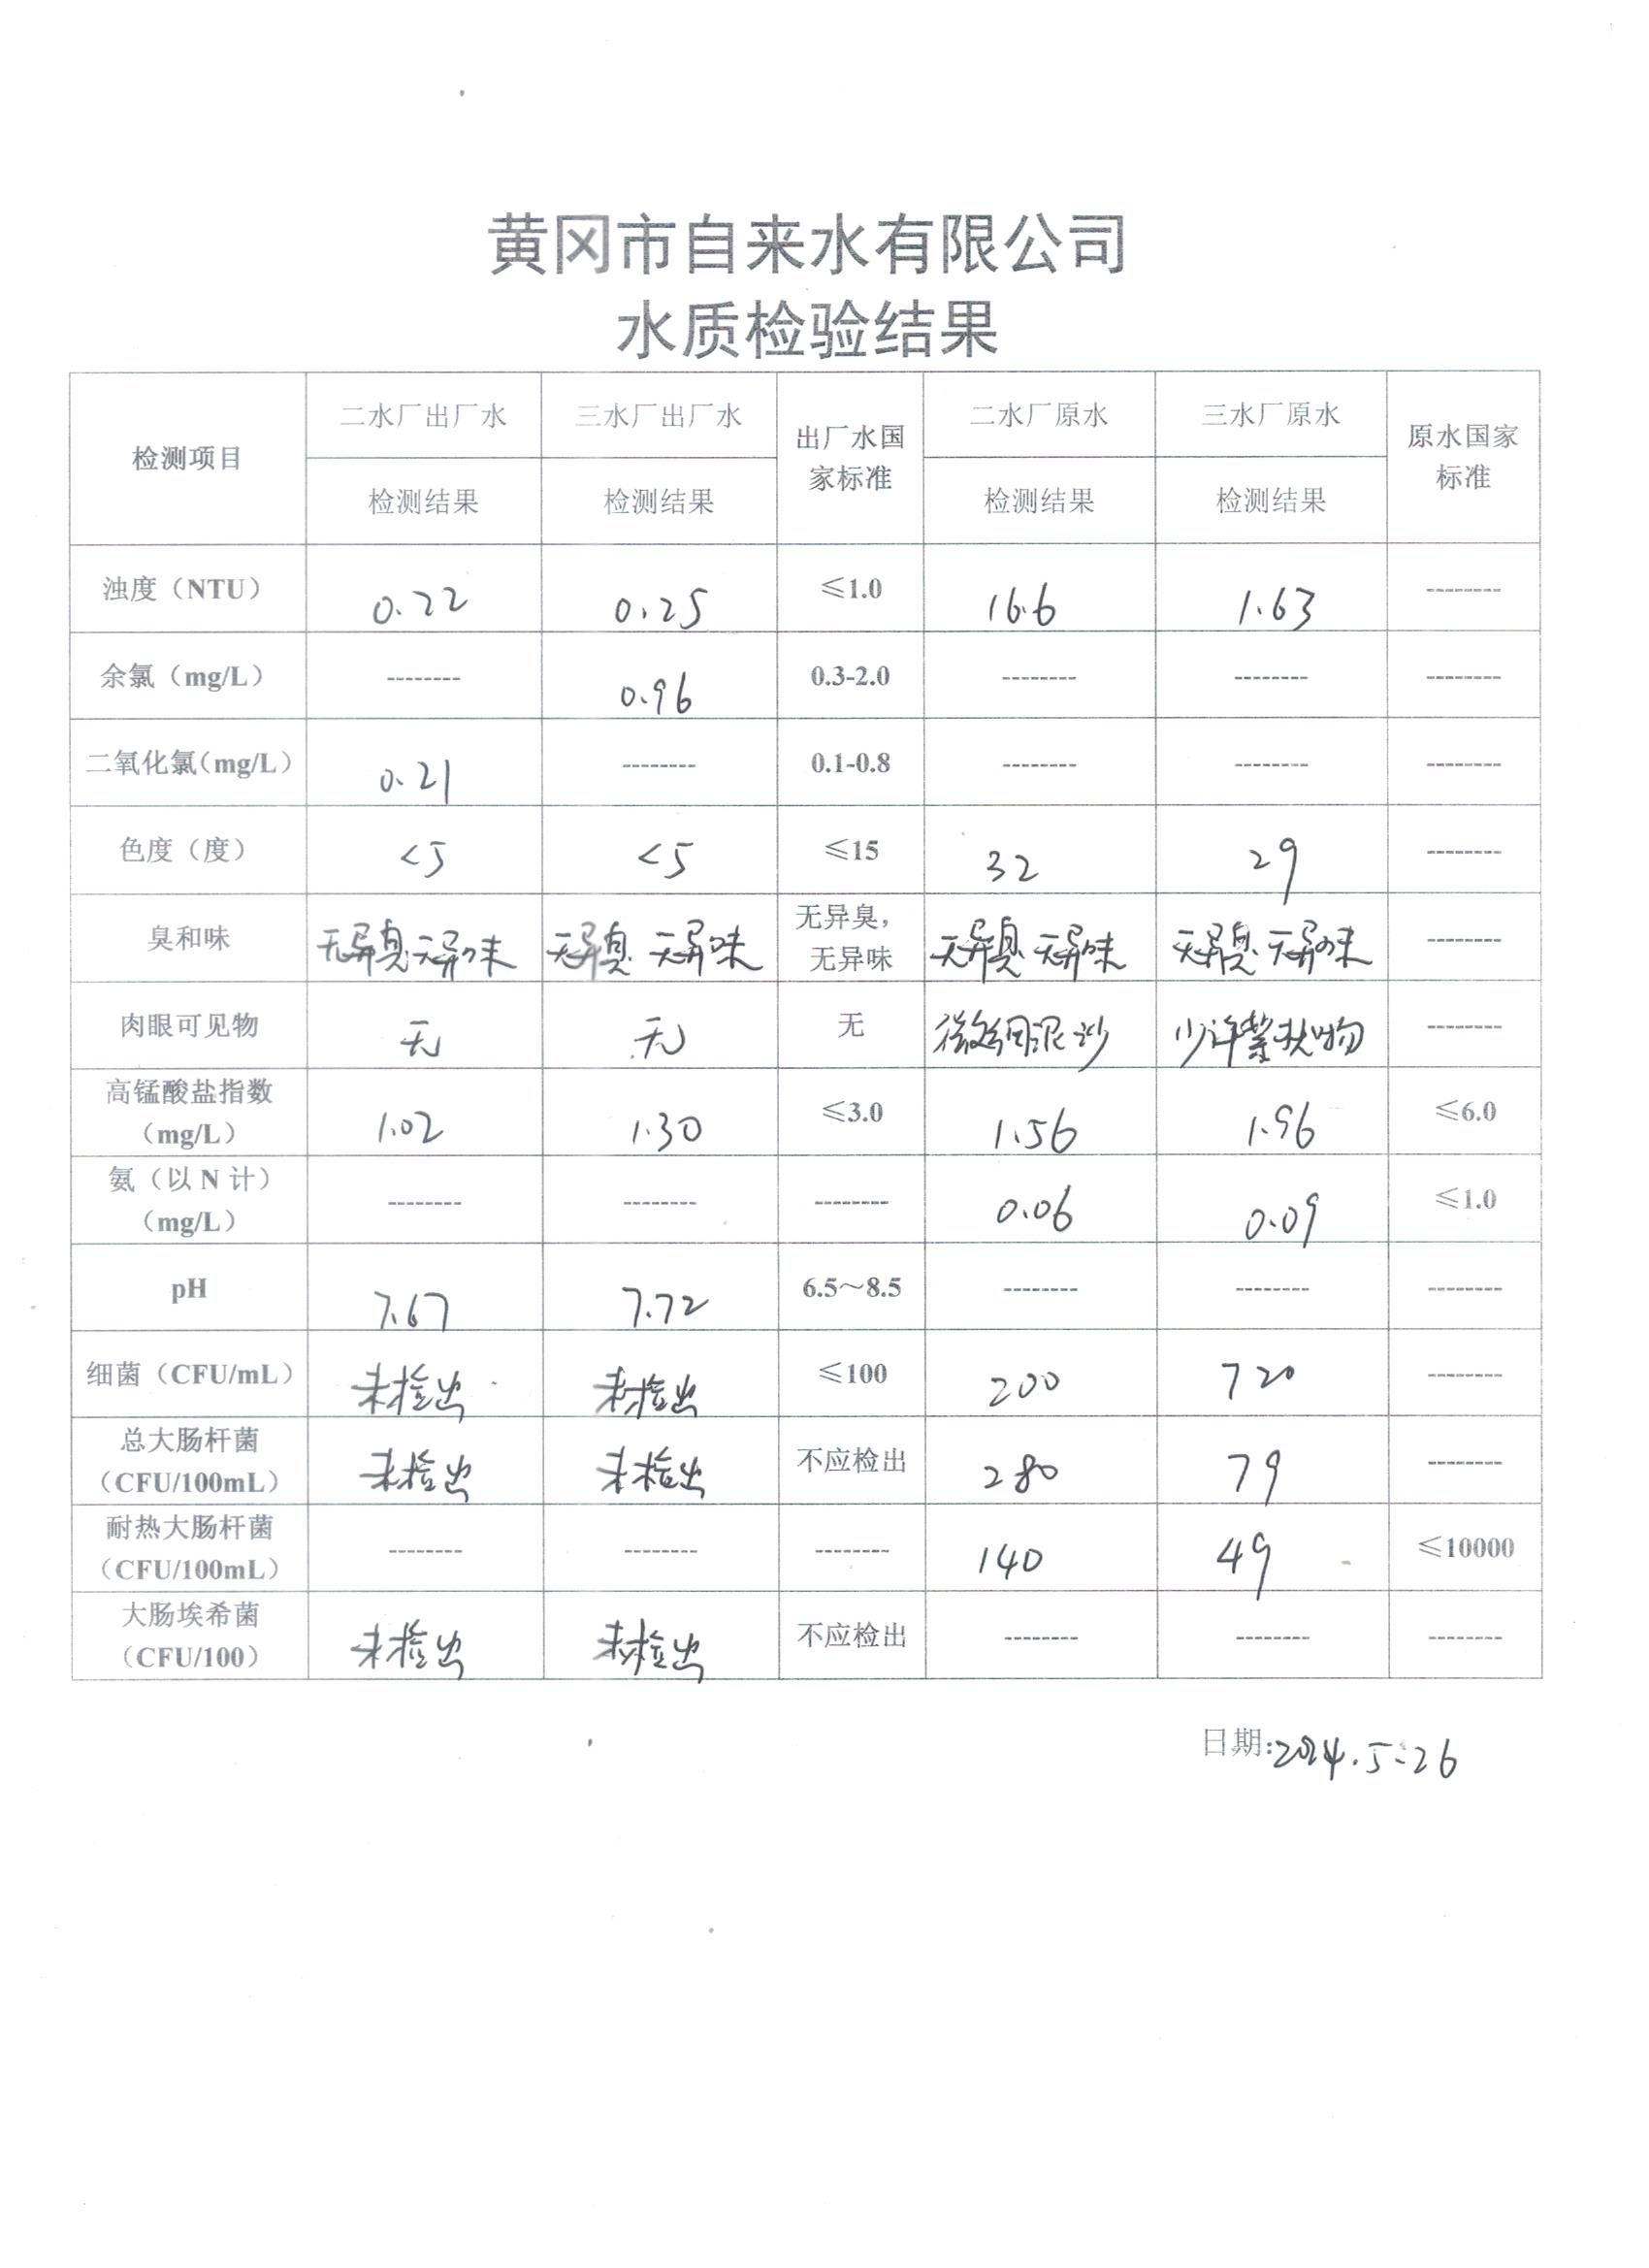 黄冈市自来水有限公司
水质检验结果
检测项目 二水厂出厂水 三水厂出厂水 出厂水国家标准 二水厂原水 三水厂原水 原水国家标准
检测结果 检测结果 检测结果 检测结果
浊度（NTU） 0.22 0.25 ≤1.0 16.6 1.63 --------
余氯（mg/L） -------- 0.96 0.3-2.0 -------- -------- --------
二氧化氯（mg/L） 0.21 -------- 0.1-0.8 -------- -------- --------
色度（度） <5 <5 ≤15 32 29 --------
臭和味 无异臭.无异味 无异臭.无异味 无异臭，无异味 无异臭.无异味 无异臭.无异味 --------
肉眼可见物 无 无 无 微细泥沙 少许絮状物 --------
高锰酸盐指数（mg/L） 1.02 1.30 ≤3.0 1.56 1.96 ≤6.0
氨（以N计）（mg/L） -------- -------- -------- 0.06 0.09 ≤1.0
pH 7.67 7.72 6.5～8.5 -------- -------- --------
细菌（CFU/mL） 未检出 未检出 ≤100 200 720 --------
总大肠杆菌（CFU/100mL） 未检出 未检出 不应检出 280 79 --------
耐热大肠杆菌（CFU/100mL） -------- -------- -------- 140 49 ≤10000
大肠埃希菌（CFU/100） 未检出 未检出 不应检出 -------- -------- --------
日期:2024.5.26